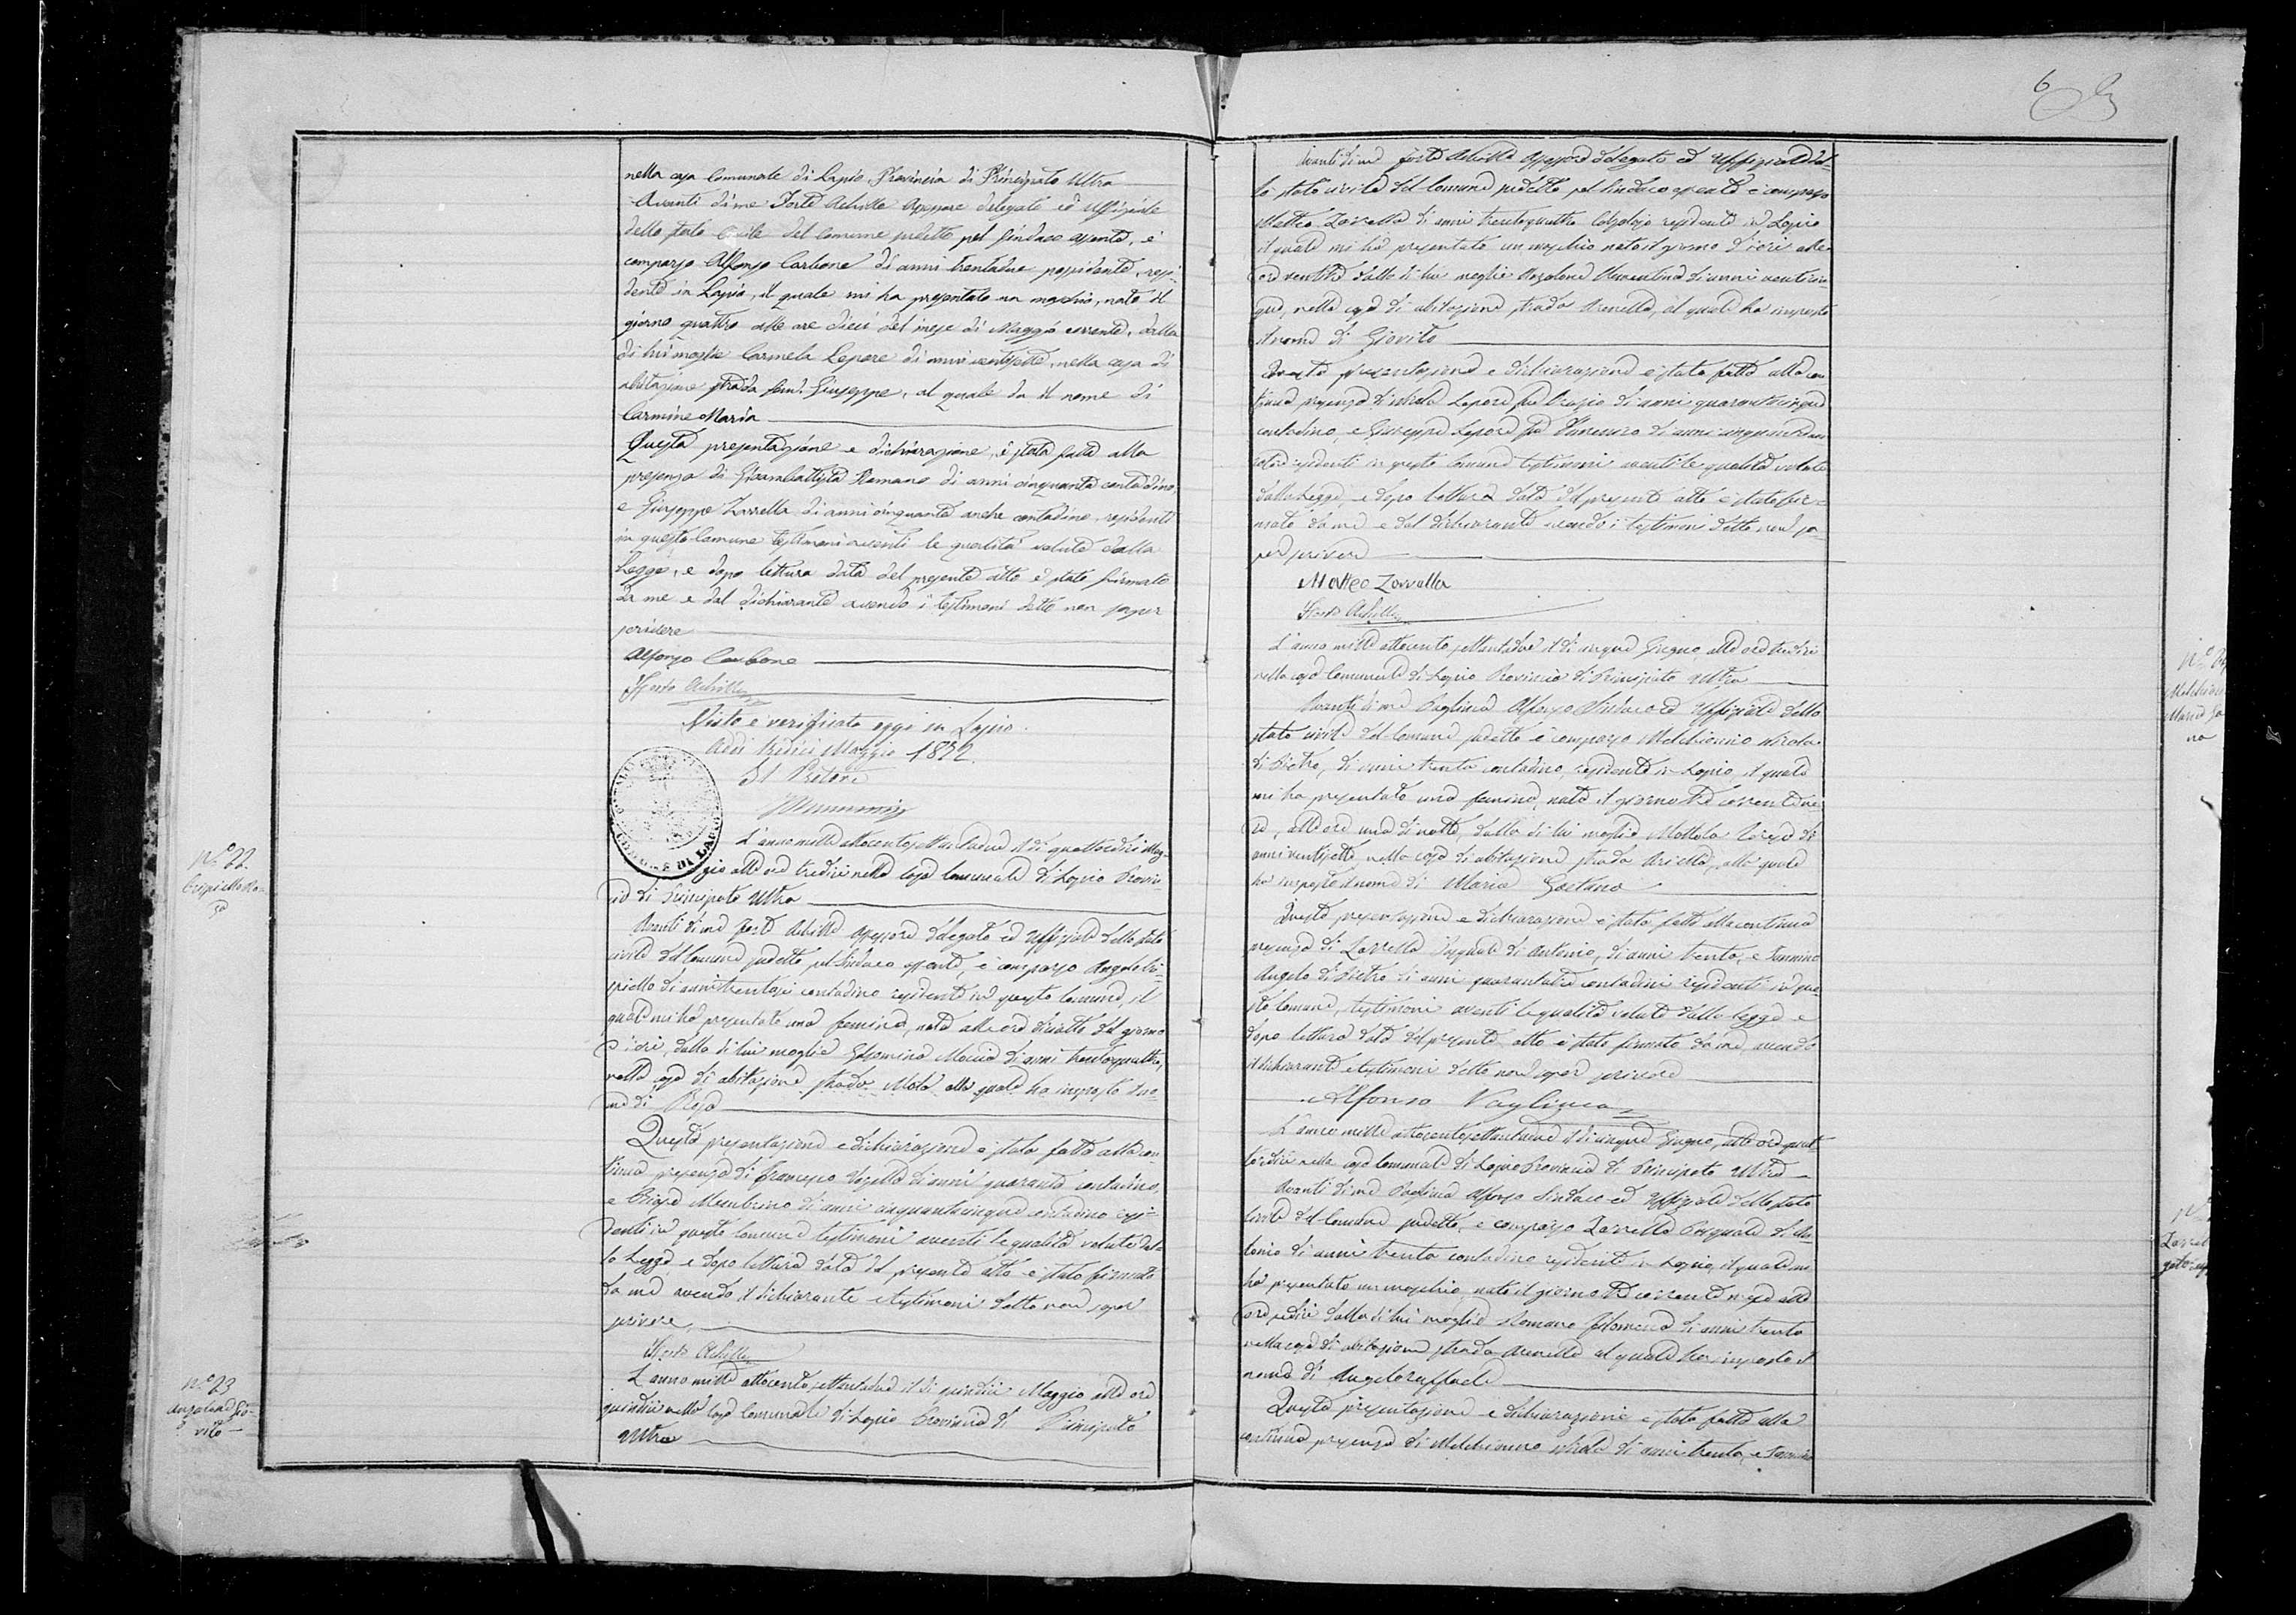 nella casa Comunale di Lapio, Provincia di Principato Ultra
Avanti di me Forte Achille Assessore delegato ed Uffiziale
dello stato Civile del Comune sudetto pel Sindaco assente, è
comparso Alfonso Carbone di anni trentadue possidente, resi-
dente in Lapio, il quale mi ha presentato un maschio, nato il
giorno quattro alle ore dieci del mese di Maggio corrente, dalla
di lui moglie Carmela Lepore di anni ventisette, nella casa di
abitazione strada San Giuseppe, al quale da il nome di
Carmine Maria
Questa presentazione e dichiarazione, è stata fatta alla
presenza di Giambattista Romano di anni cinquanta contadino,
e Giuseppe Zarrella di anni cinquanta anche contadino, residenti
in questo Comune testimoni aventi le qualità volute dalla
Legge, e dopo lettura data del presente atto è stato firmato
da me e dal dichiarante avendo i testimoni detto non saper
scrivere
Alfonso Carbone
Forte Achille
Visto e verificato oggi in Lapio
Addi tredici Maggio 1872.
Il Pretore
COMUNE DI LAPIO
N.° 22
Crispiello Ro-
sa
L'anno mille ottocento settantadue il di quattordici Mag-
gio alle ore tredici nella Casa Comunale di Lapio Provin-
cia di Principato Ultra
Avanti di me Forte Achille Assessore delegato ed Uffiziale dello stato
civile del Comune sudetto pel Sindaco assente, è comparso Angelo Cri-
spiello di anni trentasei contadino residente in questo Comune, il
quale mi ha presentato una femina, nata alle ore diciotto del giorno
d'ieri, dalla di lui moglie Gelsomina Moccia di anni trentaquattro,
nella casa di abitazione strada Mola alla quale ha imposto il no-
me di Rosa
Questa presentazione e dichiarazione è stata fatta alla con-
tinua presenza di Francesco di anni quaranta contadino,
e Biase Membrino di anni cinquantacinque contadino resi-
denti in questo Comune testimoni aventi le qualità volute dal-
la Legge e dopo lettura data del presente atto è stato firmato
da me avendo il dichiarante e testimoni detto non saper
scrivere
Forte Achille
N.° 23
Anzalone Gio-
vito
L'anno mille ottocento settantadue il di quindici Maggio alle ore
quindici nella Casa Comunale di Lapio Provincia di Principato
Ultra
6
Avanti di me Forte Achille Assessore delegato ed Uffiziale del-
lo stato civile del Comune sudetto pel Sindaco assente è comparso
Matteo Zarrella di anni trentaquattro Calzolajo residente in Lapio
il quale mi ha presentato un maschio nato il giorno d'ieri alle
ore ventitre dalla di lui moglie Anzalone Clementina di anni venticin-
que, nella casa di abitazione strada Arenella, al quale ha imposto
il nome di Giovito
Questa presentazione e dichiarazione è stata fatta alla con-
tinua presenza di Nicola Lepore fu Biagio di anni quarantacinque
contadino, e Giuseppe Lepore fu di anni cinquanta con-
tadino residenti in questo Comune testimoni aventi le qualità volute
dalla Legge e dopo lettura data del presente atto è stato fir-
mato da me e dal dichiarante avendo i testimoni detto non sa-
per scrivere
Matteo Zarrella
Forte Achille
L'anno mille ottocento settantadue il di cinque Giugno, alle ore tredici
nella casa Comunale di Lapio Provincia di Principato Ultra
Avanti di me Vaglieca Alfonso Sindaco ed Uffiziale dello
stato civile del Comune sudetto è comparso Melchionno Nicola
di Pietro, di anni trenta contadino, residente in Lapio, il quale
mi ha presentato una femina, nata il giorno tre corrente me-
se, alle ore una di notte, dalla di lui moglie Mottola Teresa di
anni ventisette, nella casa di abitazione strada Ariella, alla quale
ha imposto il nome di Maria Gaetana
Questa presentazione e dichiarazione è stata fatta alla continua
presenza di Zarrella Pasquale di Antonio, di anni trenta, e Iannino
Angelo di Pietro di anni quarantatre contadini residenti in que-
sto Comune, testimoni aventi le qualità volute dalla legge e
dopo lettura data del presente atto è stato firmato da me, avendo
il dichiarante e testimoni detto non saper scrivere
Alfonso Vaglieca
N.°
Melchion
Maria Ga
na
L'anno mille ottocento settantadue il di cinque Giugno, alle ore quat-
tordici nella casa Comunale di Lapio Provincia di Principato Ultra
Avanti di me Vaglieca Alfonso Sindaco ed Uffiziale dello stato
Civile del Comune sudetto, è comparso Zarrella Pasquale di An-
tonio di anni trenta contadino residente in Lapio, il quale mi
ha presentato un maschio, nato il giorno tre corrente mese alle
ore sedici dalla di lui moglie Romano Filomena di anni trenta
nella casa di abitazione strada Arenella al quale ha imposto il
nome di Angeloraffaele
Questa presentazione e dichiarazione è stata fatta alla
continua presenza di Melchionno Nicola di anni trenta, e Iannino
N
Zarrel